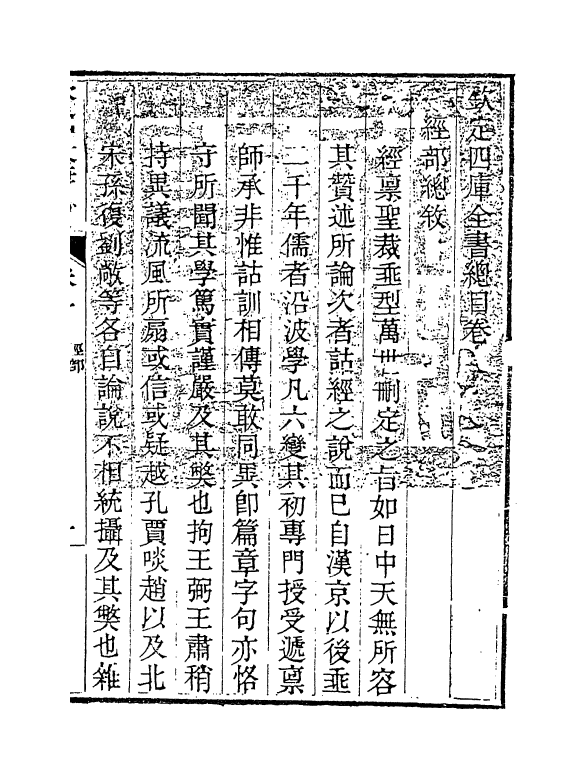 欽定四庫全書總目卷一
經部總敘
經禀聖裁垂型萬世刪定之旨如日中天無所容
其贊述所論次者詁經之說而已自漢京以後垂
二千年儒者沿波學凡六變其初專門授受遞禀
師承非惟詁訓相傳莫敢同異卽篇章字句亦恪
守所聞其學篤實謹嚴及其獘也拘王弼王肅稍
持異議流風所扇或信或疑越孔賈啖趙以及北
宋孫復劉敞等各自論說不相統攝及其獘也雜
經部
一